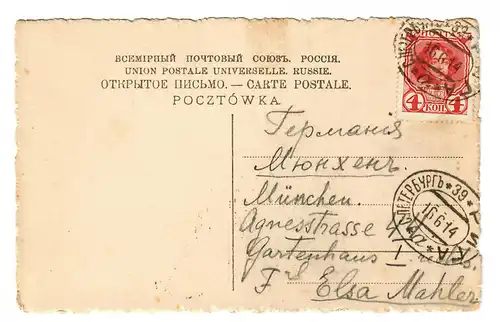 ВСЕМІРНЫЙ ПОЧТОВЫЙ СОЮЗЪ. РОССІЯ.
UNION POSTALE UNIVERSELLE. RUSSIE.
ОТКРЫТОЕ ПИСЬМО. — CARTE POSTALE.
POCZTÓWKA.
16.6.14
4 КОП 4
Германія
Мюнхенъ
München.
Agnesstrasse
Gartenhaus I
Frl Elsa Mahler
С.ПЕТЕРБУРГЪ * 39 *
16.6.14